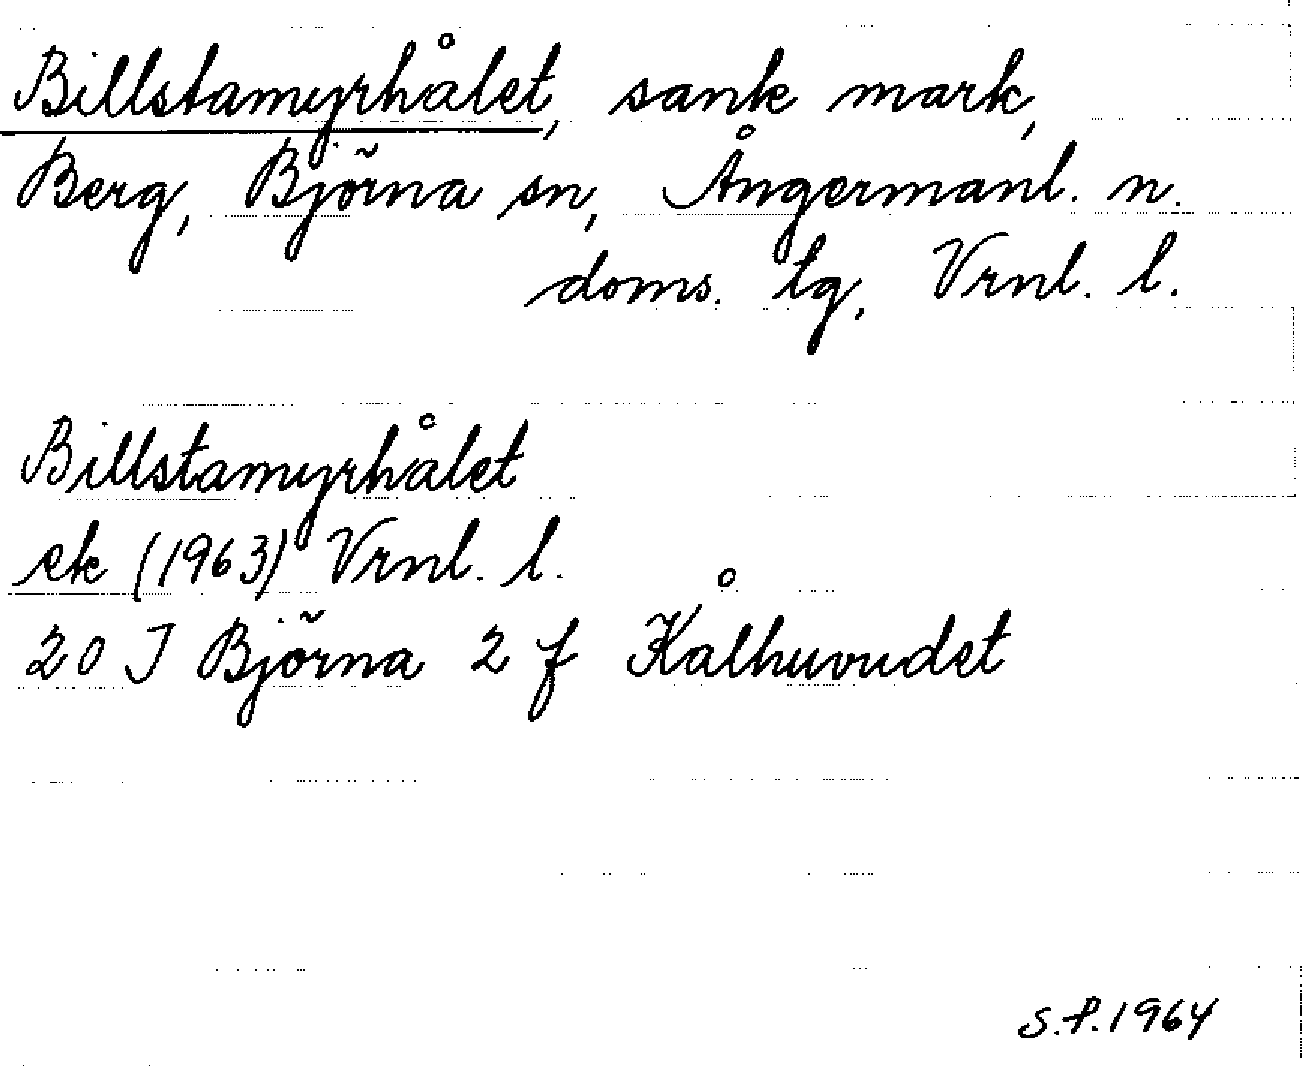 Billstamyrhålet, sank mark,
Berg, Björna sn, Ångermanl. n.
doms. tg, Vrnl. l.
Billstamyrhålet
ek (1963) Vrnl. l.
20 J Björna 2 f Kålhuvudet
S.P.1964